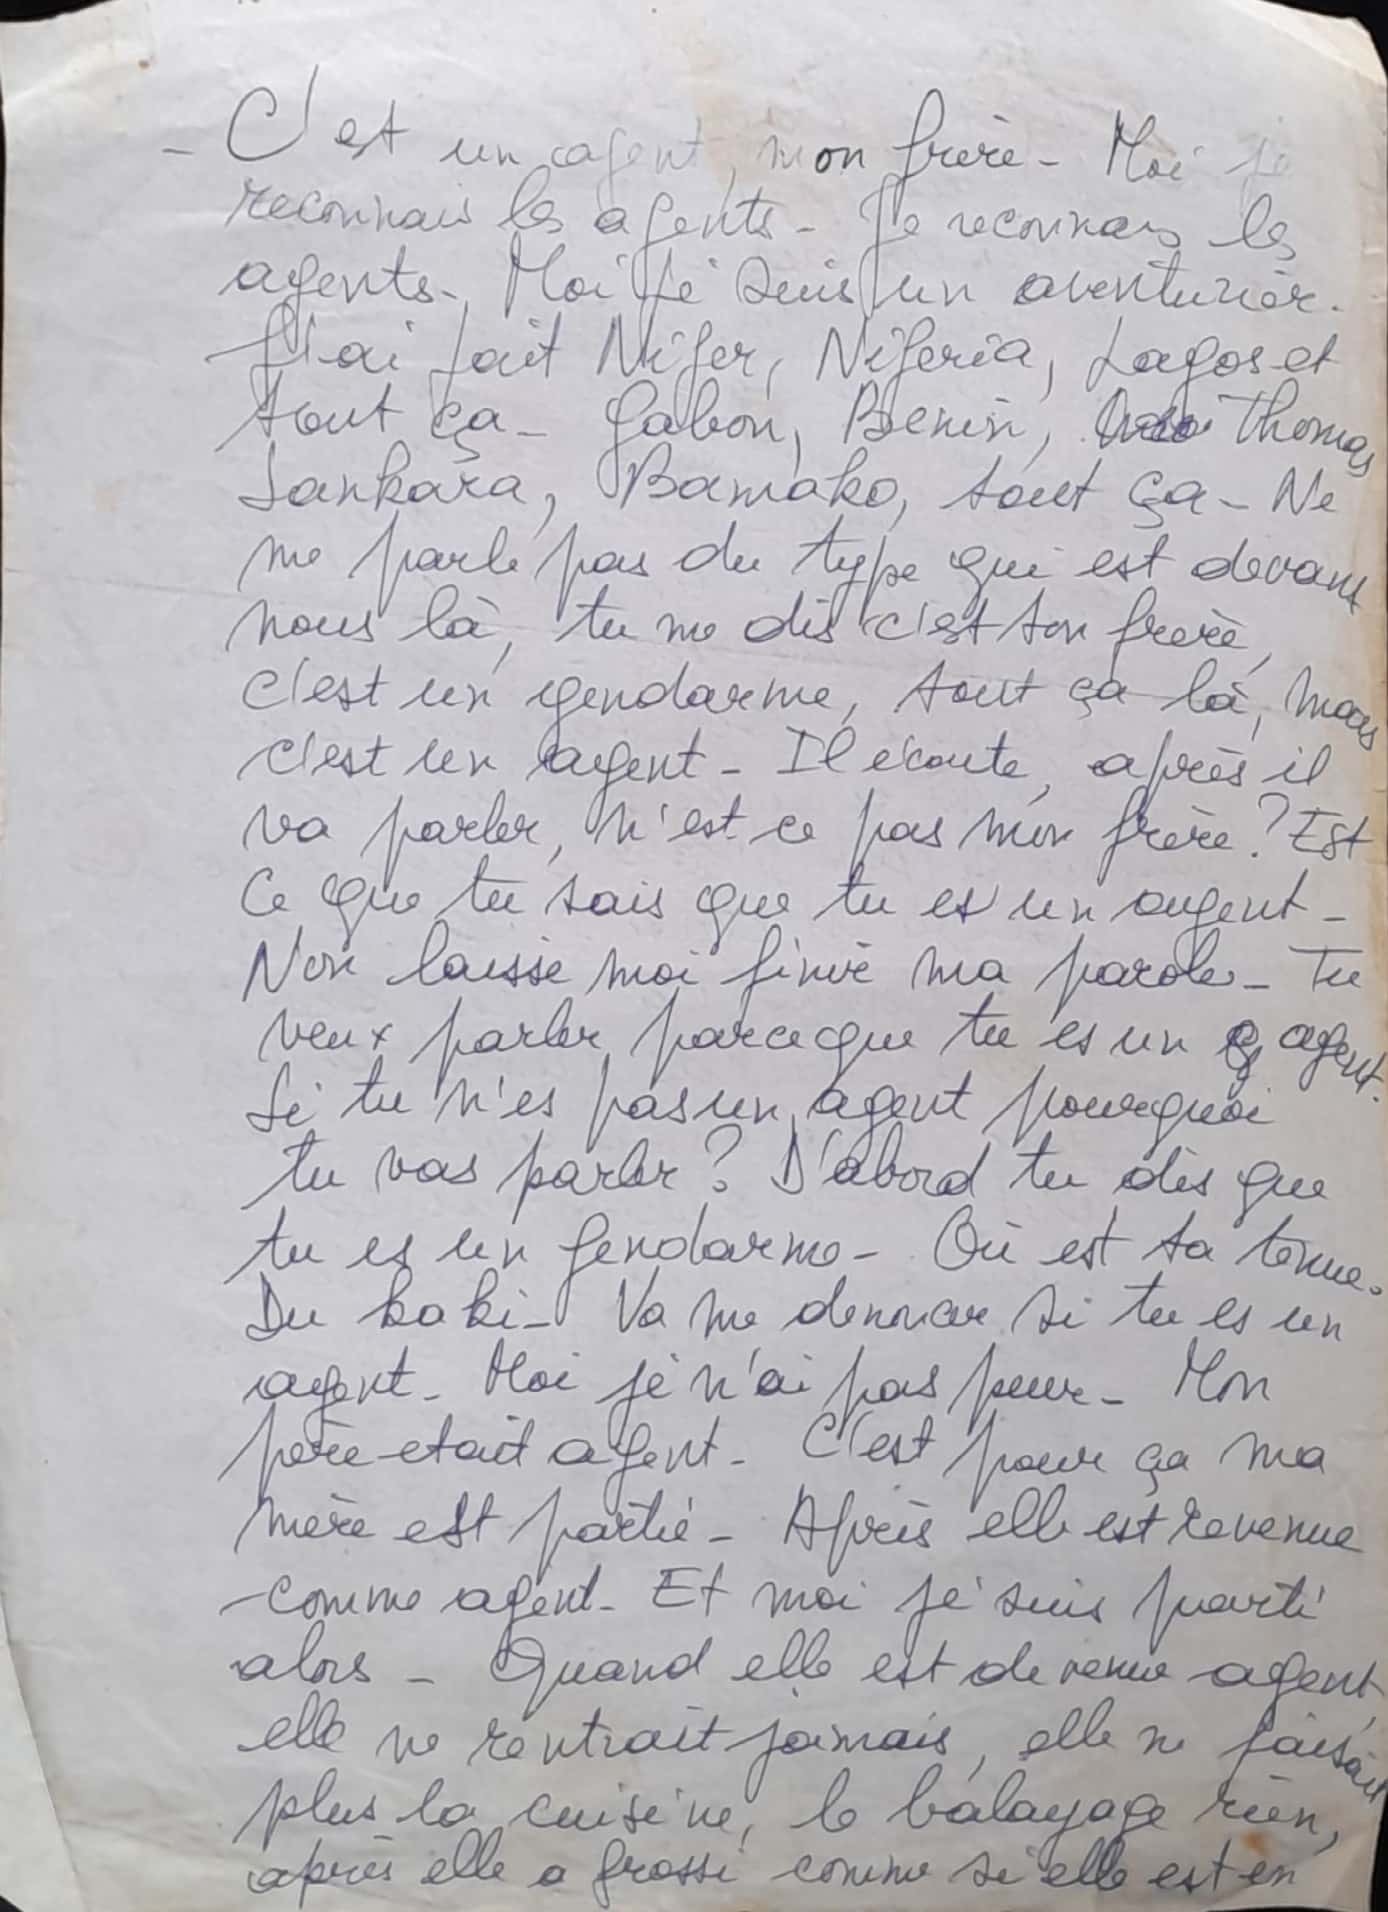 - C'est un agent, mon frère - Moi je
reconnais les agents - Je reconnais les
agents - Moi je suis un aventurier.
J'ai fait Niger, Nigeria, Lagos et
tout ça - Gabon, Benin, Thomas
Sankara, Bamako, tout ça - Ne
me parle pas du type qui est devant
nous là, tu me dis c'est ton frère,
c'est un gendarme, tout ça là, mais
c'est un agent - Il écoute, après il
va parler, n'est-ce pas mon frère ? Est
Ce que tu sais que tu es un agent -
Non laisse moi finir ma parole - Tu
veux parler parce que tu es un agent.
Si tu n'es pas un agent pourquoi
tu vas parler ? D'abord tu dis que
tu es un gendarme - Où est ta tenue.
Du kaki - Va me denoncer si tu es un
agent - Moi je n'ai pas peur - Mon
père etait agent - C'est pour ça ma
mère est partie - Après elle est revenue
comme agent - Et moi je suis parti
alors - Quand elle est devenue agent,
elle ne rentrait jamais, elle ne faisait
plus la cuisine, le balayage rien,
après elle a grossi comme si elle est en